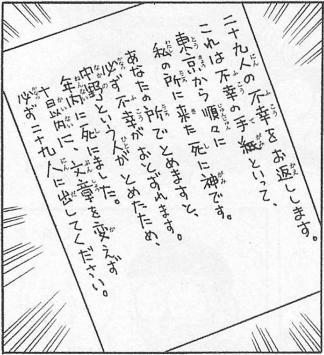 二十九人の不幸をお返しします。
これは不幸の手紙といって、
東京から順々に
私の所に来た死に神です。
あなたの所でとめますと、
必ず不幸がおとずれます。
中野という人がとめたため、
年内に死にました。
十日以内に、文章を変えず
必ず二十九人に出してください。